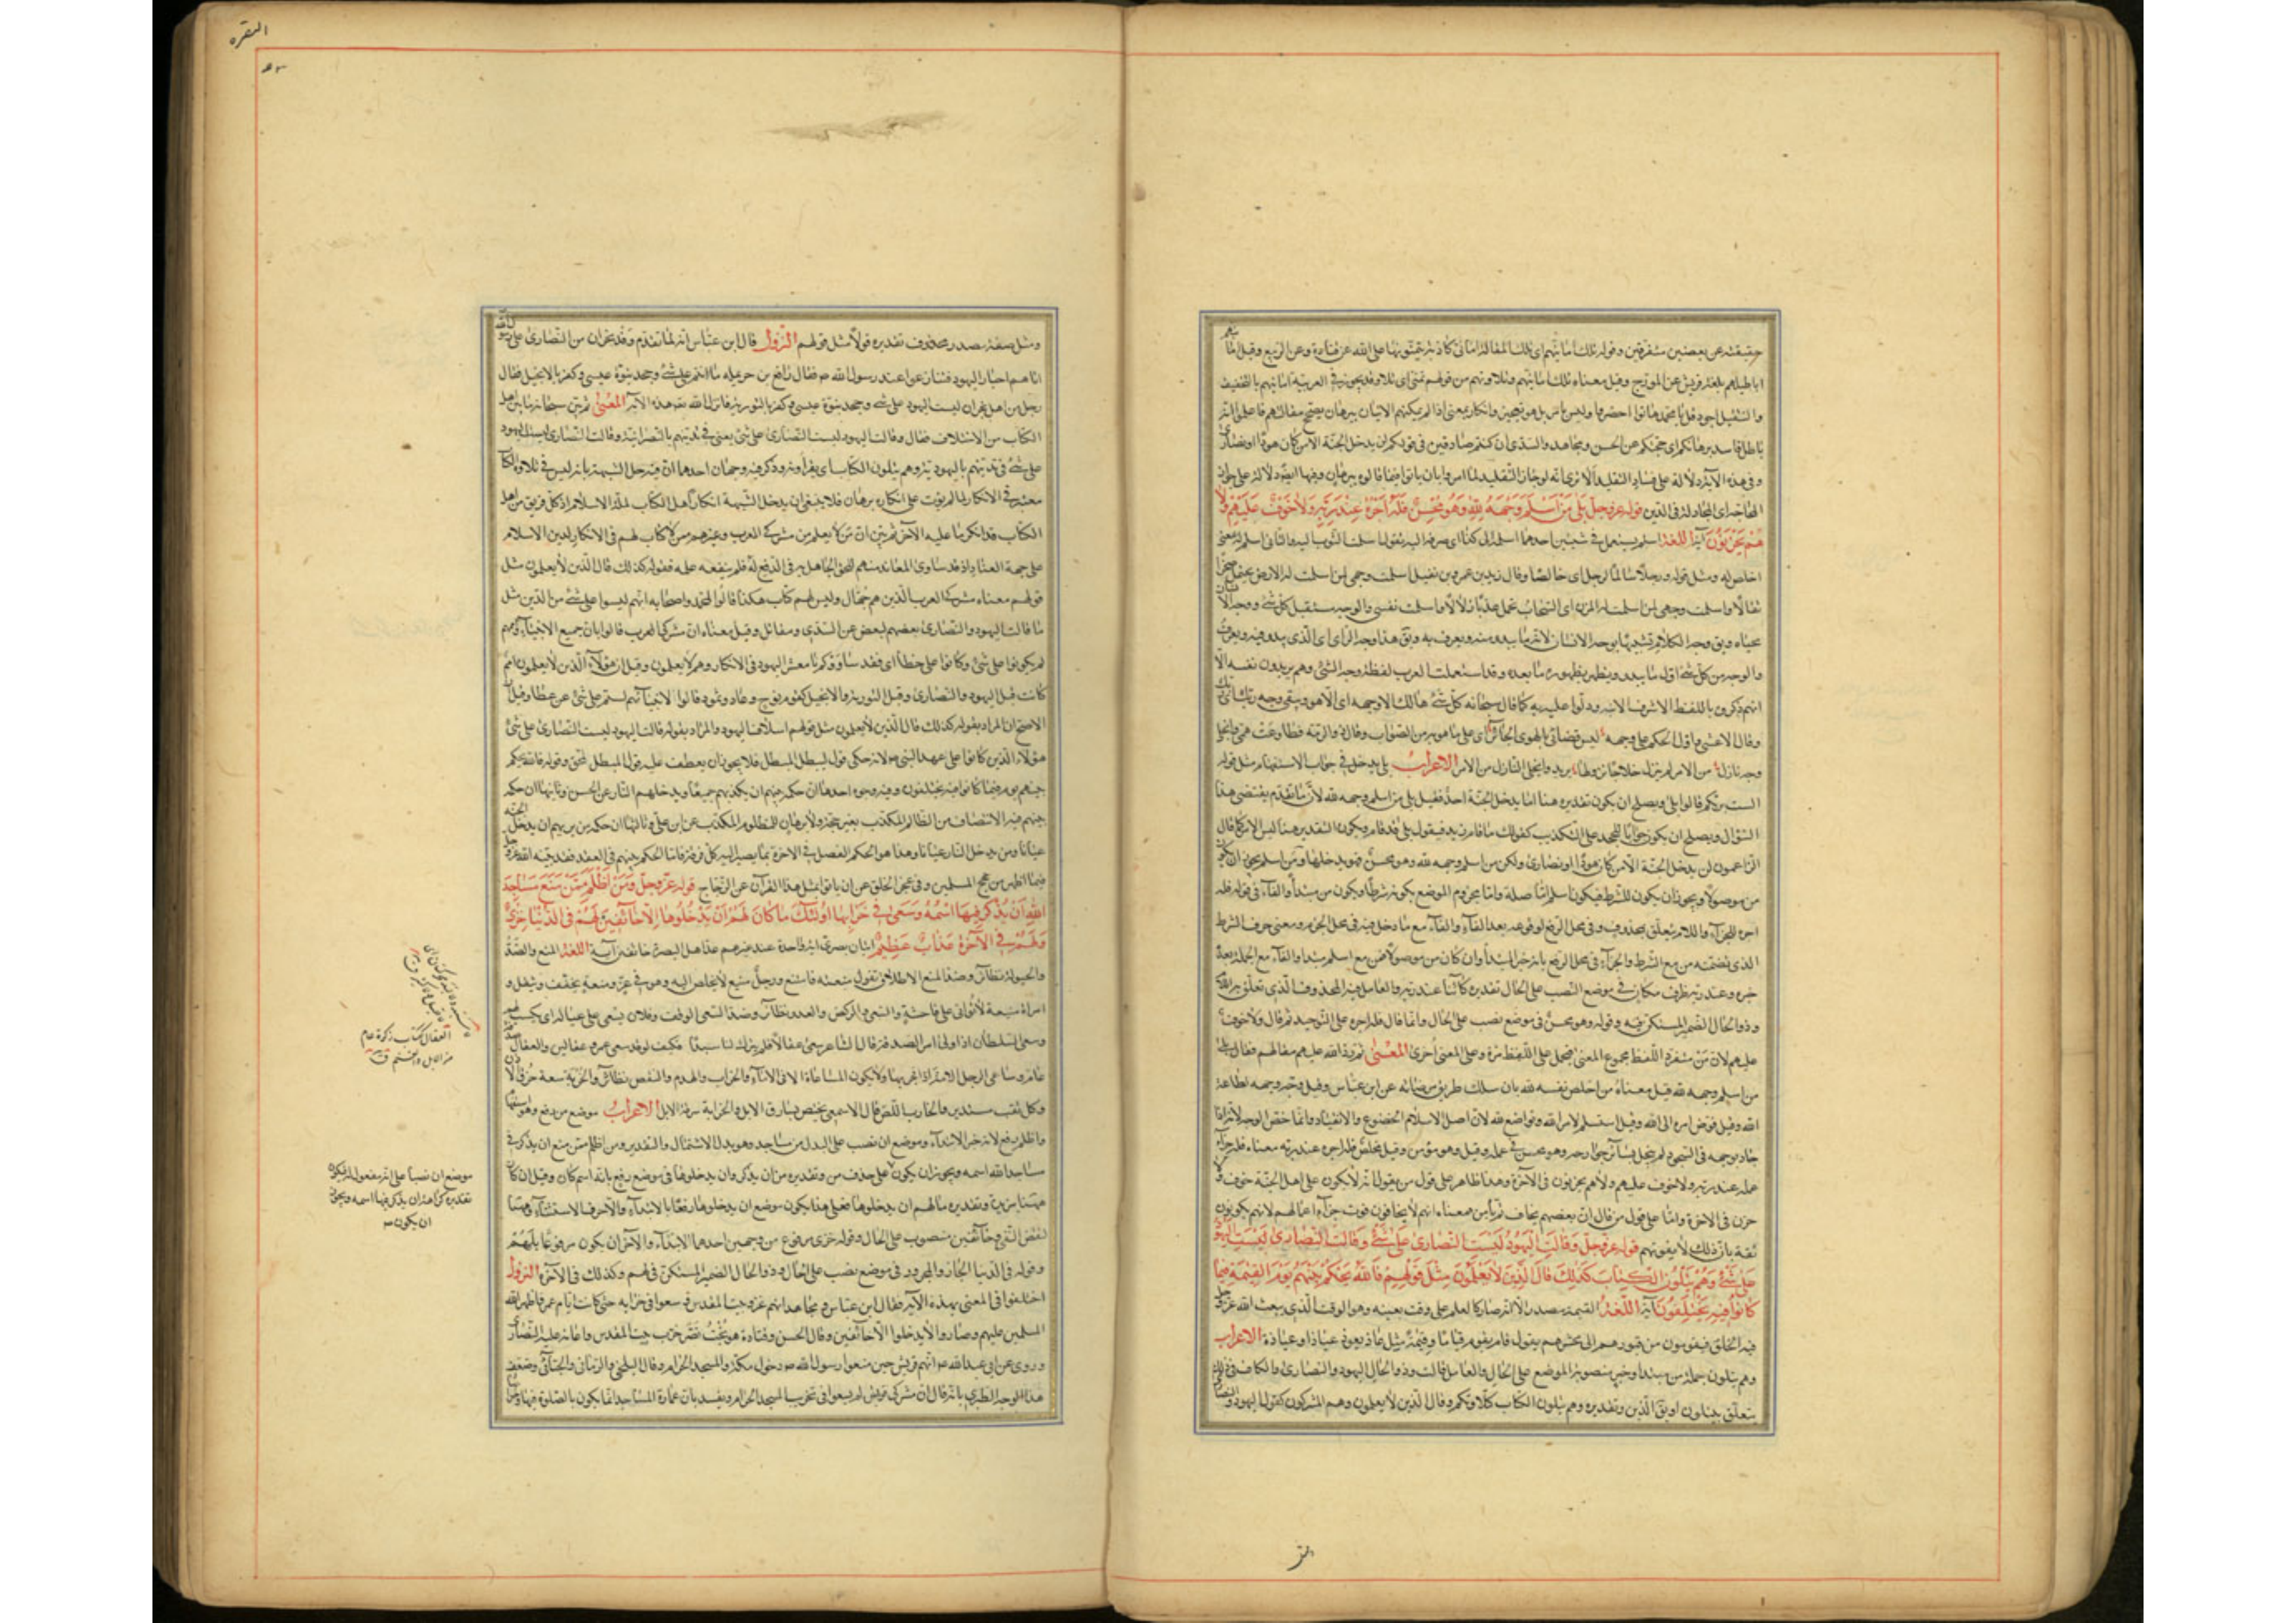 حقيقته عن بعضين متفرقين وقوله تلك امانيهم اى تلك المقالة امانى كاذبة يتمنونها على الله عن قتادة وعن الربيع وقيل
اباطيلهم بلغة قريش عن المورج وقيل معناه تلك امانيهم وتلاوتهم من قولهم تمنى اى تلا وقد يجوز فى العربية امانيهم بالتخفيف
والتثقيل اجود قل يا محمد هاتوا احضروا وليس بامر بل هو تعجيز وانكار بمعنى اذا لم يمكنهم الاتيان ببرهان يصحح مقالتهم فاعلموا انه
باطل فاسد برهانكم اى حجتكم عن الحسن ومجاهد والسدى ان كنتم صادقين فى قولكم لن يدخل الجنة الا من كان هودا او نصارى
وفى هذه الآية دلالة على فساد التقليد الا ترى انه لو جاز التقليد لما امروا بان ياتوا فيما قالوه ببرهان وفيها ايضا دلالة على جواز
المحاجة فى الدين قوله عز وجل بلى من اسلم وجهه لله وهو محسن فله اجره عند ربه ولا خوف عليهم ولا
هم يحزنون آية اللغة اسلم يستعمل فى شيئين احدهما اسلمه الى كذا اى صرفه اليه تقول اسلمت الثوب اليه والثانى اسلم له بمعنى
اخلص له ومثل قوله ورجلا سالما لرجل اى خالصا وقال زيد بن عمرو بن نفيل اسلمت وجهى لمن اسلمت له الارض تحمل صخرا
ثقالا واسلمت وجهى لمن اسلمت له المزن اى السحاب تحمل عذبا زلالا واسلمت نفسى والوجه مستقبل كل شئ ووجه الانسان
محياه ويق وجه الكلام تشبيها بوجه الانسان لانه اول ما يبدو منه ويعرف به ويق هذا وجه الراى اى الذى يبدو فيه ويعرف
والوجه من كل شئ اول ما يبدو فيظهر بظهوره ما بعده وقد استعملت العرب لفظة وجه الشئ وهم يريدون نفسه الا
انهم ذكروه باللفظ الاشرف الانبه ودلوا عليه به كما قال سبحانه كل شئ هالك الا وجهه اى الا هو ويبقى وجه ربك اى ربك
وقال الاعشى واول الحكم على وجهه ليس قضائى بالهوى الجائر اى على ما هو به من الصواب وقال ذو الرمة فطاوعت همى وانجلى
وجه نازل من الامر لم يترك خلاجا نزولها يريد وانجلى النازل من الامر الاعراب بلى يدخل فى جواب الاستفهام مثل قوله
الست بربكم قالوا بلى ويصلح ان يكون تقديره هنا اما يدخل الجنة احد فقيل بلى من اسلم وجهه لله لان ما تقدم يقتضى هذا
السؤال ويصلح ان يكون جوابا للجحد على التكذيب كقولك ما قام زيد فيقول بلى قد قام ويكون التقدير هنا ليس الامر كما قال
الزاعمون لن يدخل الجنة الا من كان هودا او نصارى ولكن من اسلم وجهه لله وهو محسن فهو يدخلها ومن اسلم يجوز ان يكون
من موصولا ويجوز ان يكون للشرط فيكون اسلم اما صلة واما مجزوم الموضع بكونه شرطا ويكون من مبتدأ والفاء فى قوله فله
اجره للجزاء واللام تتعلق بمحذوف وفى محل الرفع لوقوعه بعد الفاء والفاء مع ما دخل فيه فى محل الجزم ومعنى حرف الشرط
الذى تضمنه من مع الشرط والجزاء فى محل الرفع بانه خبر المبتدأ وان كان من موصولا فمن مع اسلم مبتدا والفاء مع الجملة بعده
خبره وعند ربه ظرف مكان فى موضع النصب على الحال تقديره كائنا عند ربه والعامل فيه المحذوف الذى تعلق به اللام
وذو الحال الضمير المستكن فيه وقوله وهو محسن فى موضع نصب على الحال وانما قال فله اجره على التوحيد ثم قال ولا خوف
عليهم لان من مفرد اللفظ مجموع المعنى فيحمل على اللفظ مرة وعلى المعنى اخرى المعنى ثم رد الله عليهم مقالتهم فقال بلى
من اسلم وجهه لله قيل معناه من اخلص نفسه لله بان سلك طريق مرضاته عن ابن عباس وقيل وجه وجهه لطاعة
الله وقيل فوض امره الى الله وقيل استسلم لامر الله وتواضع لله لان اصل الاسلام الخضوع والانقياد وانما خص الوجه لانه اذا
جاد بوجهه فى السجود لم يبخل بسائر جوارحه وهو محسن فى عمله وقيل وهو مؤمن وقيل مخلص فله اجره عند ربه معناه فله جزاء
عمله عند ربه ولا خوف عليهم ولا هم يحزنون فى الآخرة وهذا ظاهر على قول من يقول انه لا يكون على اهل الجنة خوف ولا
حزن فى الآخرة واما على قول من قال ان بعضهم يخاف ثم يأمن فمعناه انهم لا يخافون فوت جزاء اعمالهم لانهم يكونون
ثقة بان ذلك لا يفوتهم قوله عز وجل وقالت اليهود ليست النصارى على شئ وقالت النصارى ليست اليهود
على شئ وهم يتلون الكتاب كذلك قال الذين لا يعلمون مثل قولهم فالله يحكم بينهم يوم القيمة فيما
كانوا فيه يختلفون آية اللغة القيمة مصدر الا انه صار كالعلم على وقت بعينه وهو الوقت الذى يبعث الله عز وجل
فيه الخلق فيقومون من قبورهم الى محشرهم يقول قام يقوم قياما وقيمة مثل عاذ يعوذ عياذا وعياذة الاعراب
وهم يتلون جملة من مبتدا وخبر منصوبة الموضع على الحال والعامل قالت وذو الحال اليهود والنصارى والكاف فى كذلك
يتعلق بيتلون او يق الذين وتقديره وهم يتلون الكتاب كتلاوتكم وقال الذين لا يعلمون وهم المشركون كقول اليهود والنصارى
البقره
ومثل صفة مصدر محذوف تقديره قولا مثل قولهم النزول قال ابن عباس انه لما تقدم وفد نجران من النصارى على رسول الله
اتاهم احبار اليهود فتنازعوا عند رسول الله ص فقال رافع بن حريملة ما انتم على شئ وجحد نبوة عيسى وكفر بالانجيل فقال
رجل من اهل نجران ليست اليهود على شئ وجحد نبوة موسى وكفر بالتورية فانزل الله هذه الآية المعنى ثم بين سبحانه ما بين اهل
الكتاب من الاختلاف فقال وقالت اليهود ليست النصارى على شئ يعنى فى تدينهم بالنصرانية وقالت النصارى ليست اليهود
على شئ فى تدينهم باليهودية وهم يتلون الكتاب اى يقراونه وذكر فيه وجهان احدهما ان فيه حل الشبهة بانه ليس فى تلاوة الكتاب
معتبر فى الانكار لما لم يؤت على انكاره ببرهان فلا ينبغى ان يدخل الشبهة انكار اهل الكتاب لملة الاسلام اذ كل فريق من اهل
الكتاب قد انكر ما عليه الآخر ثم بين ان من لا يعلم من مشركى العرب وغيرهم ممن لا كتاب لهم فى الانكار لدين الاسلام
على جهة العناد اذ قد ساوى المعاند منهم للحق الجاهل به فى الدفع له فلم ينفعه علمه فقوله كذلك قال الذين لا يعلمون مثل
قولهم معناه مشركوا العرب الذين هم جهال وليس لهم كتاب هكذا قالوا لمحمد واصحابه انهم ليسوا على شئ من الدين مثل
ما قالت اليهود والنصارى بعضهم لبعض عن السدى ومقاتل وقيل معناه ان مشركى العرب قالوا بان جميع الانبياء واممهم
لم يكونوا على شئ وكانوا على خطا اى فقد ساووكم يا معشر اليهود فى الانكار وهم لا يعلمون وقيل ان هؤلاء الذين لا يعلمون امم
كانت قبل اليهود والنصارى وقبل التورية والانجيل كقوم نوح وعاد وثمود قالوا لانبيائهم لستم على شئ عن عطا وقيل
الاصح ان المراد بقوله كذلك قال الذين لا يعلمون مثل قولهم اسلاف اليهود والمراد بقوله قالت اليهود ليست النصارى على شئ
هؤلاء الذين كانوا على عهد النبى ص لانه حكى قول مبطل لمبطل فلا يجوز ان يعطف عليه قول مبطل لمحق وقوله فالله يحكم
بينهم يوم القيمة فيما كانوا فيه يختلفون وفيه وجوه احدها ان حكمه بينهم ان يكذبهم جميعا ويدخلهم النار عن الحسن وثانيها ان حكمه
بينهم فيه الانتصاف من الظالم المكذب بغير حجة ولا برهان للمظلوم المكذب عن ابى على وثالثها ان حكمه ان يريهم من يدخل الجنة
عيانا ومن يدخل النار عيانا وهذا هو الحكم الفصل فى الآخرة بما يصير اليه كل فرقة فاما الحكم بينهم فى العقد فقد بينه الله عز وجل
فيما اظهر من حجج المسلمين وفى عجز الخلق عن ان ياتوا بمثل هذا القرآن عن الزجاج قوله عز وجل ومن اظلم ممن منع مساجد
الله ان يذكر فيها اسمه وسعى فى خرابها اولئك ما كان لهم ان يدخلوها الا خائفين لهم فى الدنيا خزى
ولهم فى الآخرة عذاب عظيم ايتان بصرى آية واحدة عند غيرهم عد اهل البصرة خائفين آية اللغة المنع والصد
والحيلولة نظائر وضد المنع الاطلاق تقول منعته فامتنع ورجل منيع لا يخلص اليه وهو فى عز ومنعة يخفف ويثقل
وامراة منيعة لا تؤاتى على فاحشة والسعى والركض والعدو نظائر وضد السعى الوقف وفلان يسعى على عياله اى يكسب لهم
وسعى للسلطان اذا ولى امر الصدقة قال الشاعر سعى عقالا فلم يترك لنا سبدا فكيف لو قد سعى عمرو عقالين والعقال صدقة
عام وساعى الرجل الامة اذا فجر بها ولا يكون المساعاة الا فى الاماء والخراب والهدم والنقض نظائر والخربة سعة خرق الاذن
وكل ثقب مستدير والخارب اللص قال الاصمعى يختص بسارق الابل والخرابة سرقة الابل الاعراب موضع من رفع وهو استفهام
واظلم رفع لانه خبر الابتداء وموضع ان نصب على البدل من مساجد وهو بدل الاشتمال والتقدير ومن اظلم ممن منع ان يذكر فى
مساجد الله اسمه ويجوز ان يكون على حذف من وتقديره من ان يذكر وان يدخلوها فى موضع رفع بانه اسم كان وقيل ان كان
ههنا مزيدة وتقديره ما لهم ان يدخلوها فعلى هذا يكون موضع ان يدخلوها رفعا بالابتداء والا حرف الاستثناء وههنا
لنقض النفى وخائفين منصوب على الحال وقوله خزى مرفوع من وجهين احدهما الابتداء والآخر ان يكون مرفوعا بلهم
وقوله فى الدنيا الجار والمجرور فى موضع نصب على الحال وذو الحال الضمير المستكن فى لهم وكذلك فى الآخرة النزول
اختلفوا فى المعنى بهذه الآية فقال ابن عباس ومجاهد انهم الروم غزوا بيت المقدس وسعوا فى خرابه حتى كانت ايام عمر فاظهر الله
المسلمين عليهم وصاروا لا يدخلوا الا خائفين وقال الحسن وقتادة هو بخت نصر خرب بيت المقدس واعانه عليه النصارى
وروى عن ابى عبد الله ع انهم قريش حين منعوا رسول الله ص دخول مكة والمسجد الحرام وقال البلخى والرمانى والجبائى وضعف
هذا الوجه الطبرى بانه قال ان مشركى قريش لم يسعوا فى تخريب المسجد الحرام ويفسد بان عمارة المساجد انما يكون بالصلوة فيها
العقال ككتاب زكوة عام
من الابل والغنم ق
موضع ان نصبا على انه مفعول له فيكون
تقديره كراهة ان يذكر فيها اسمه ويجوز
ان يكون ص